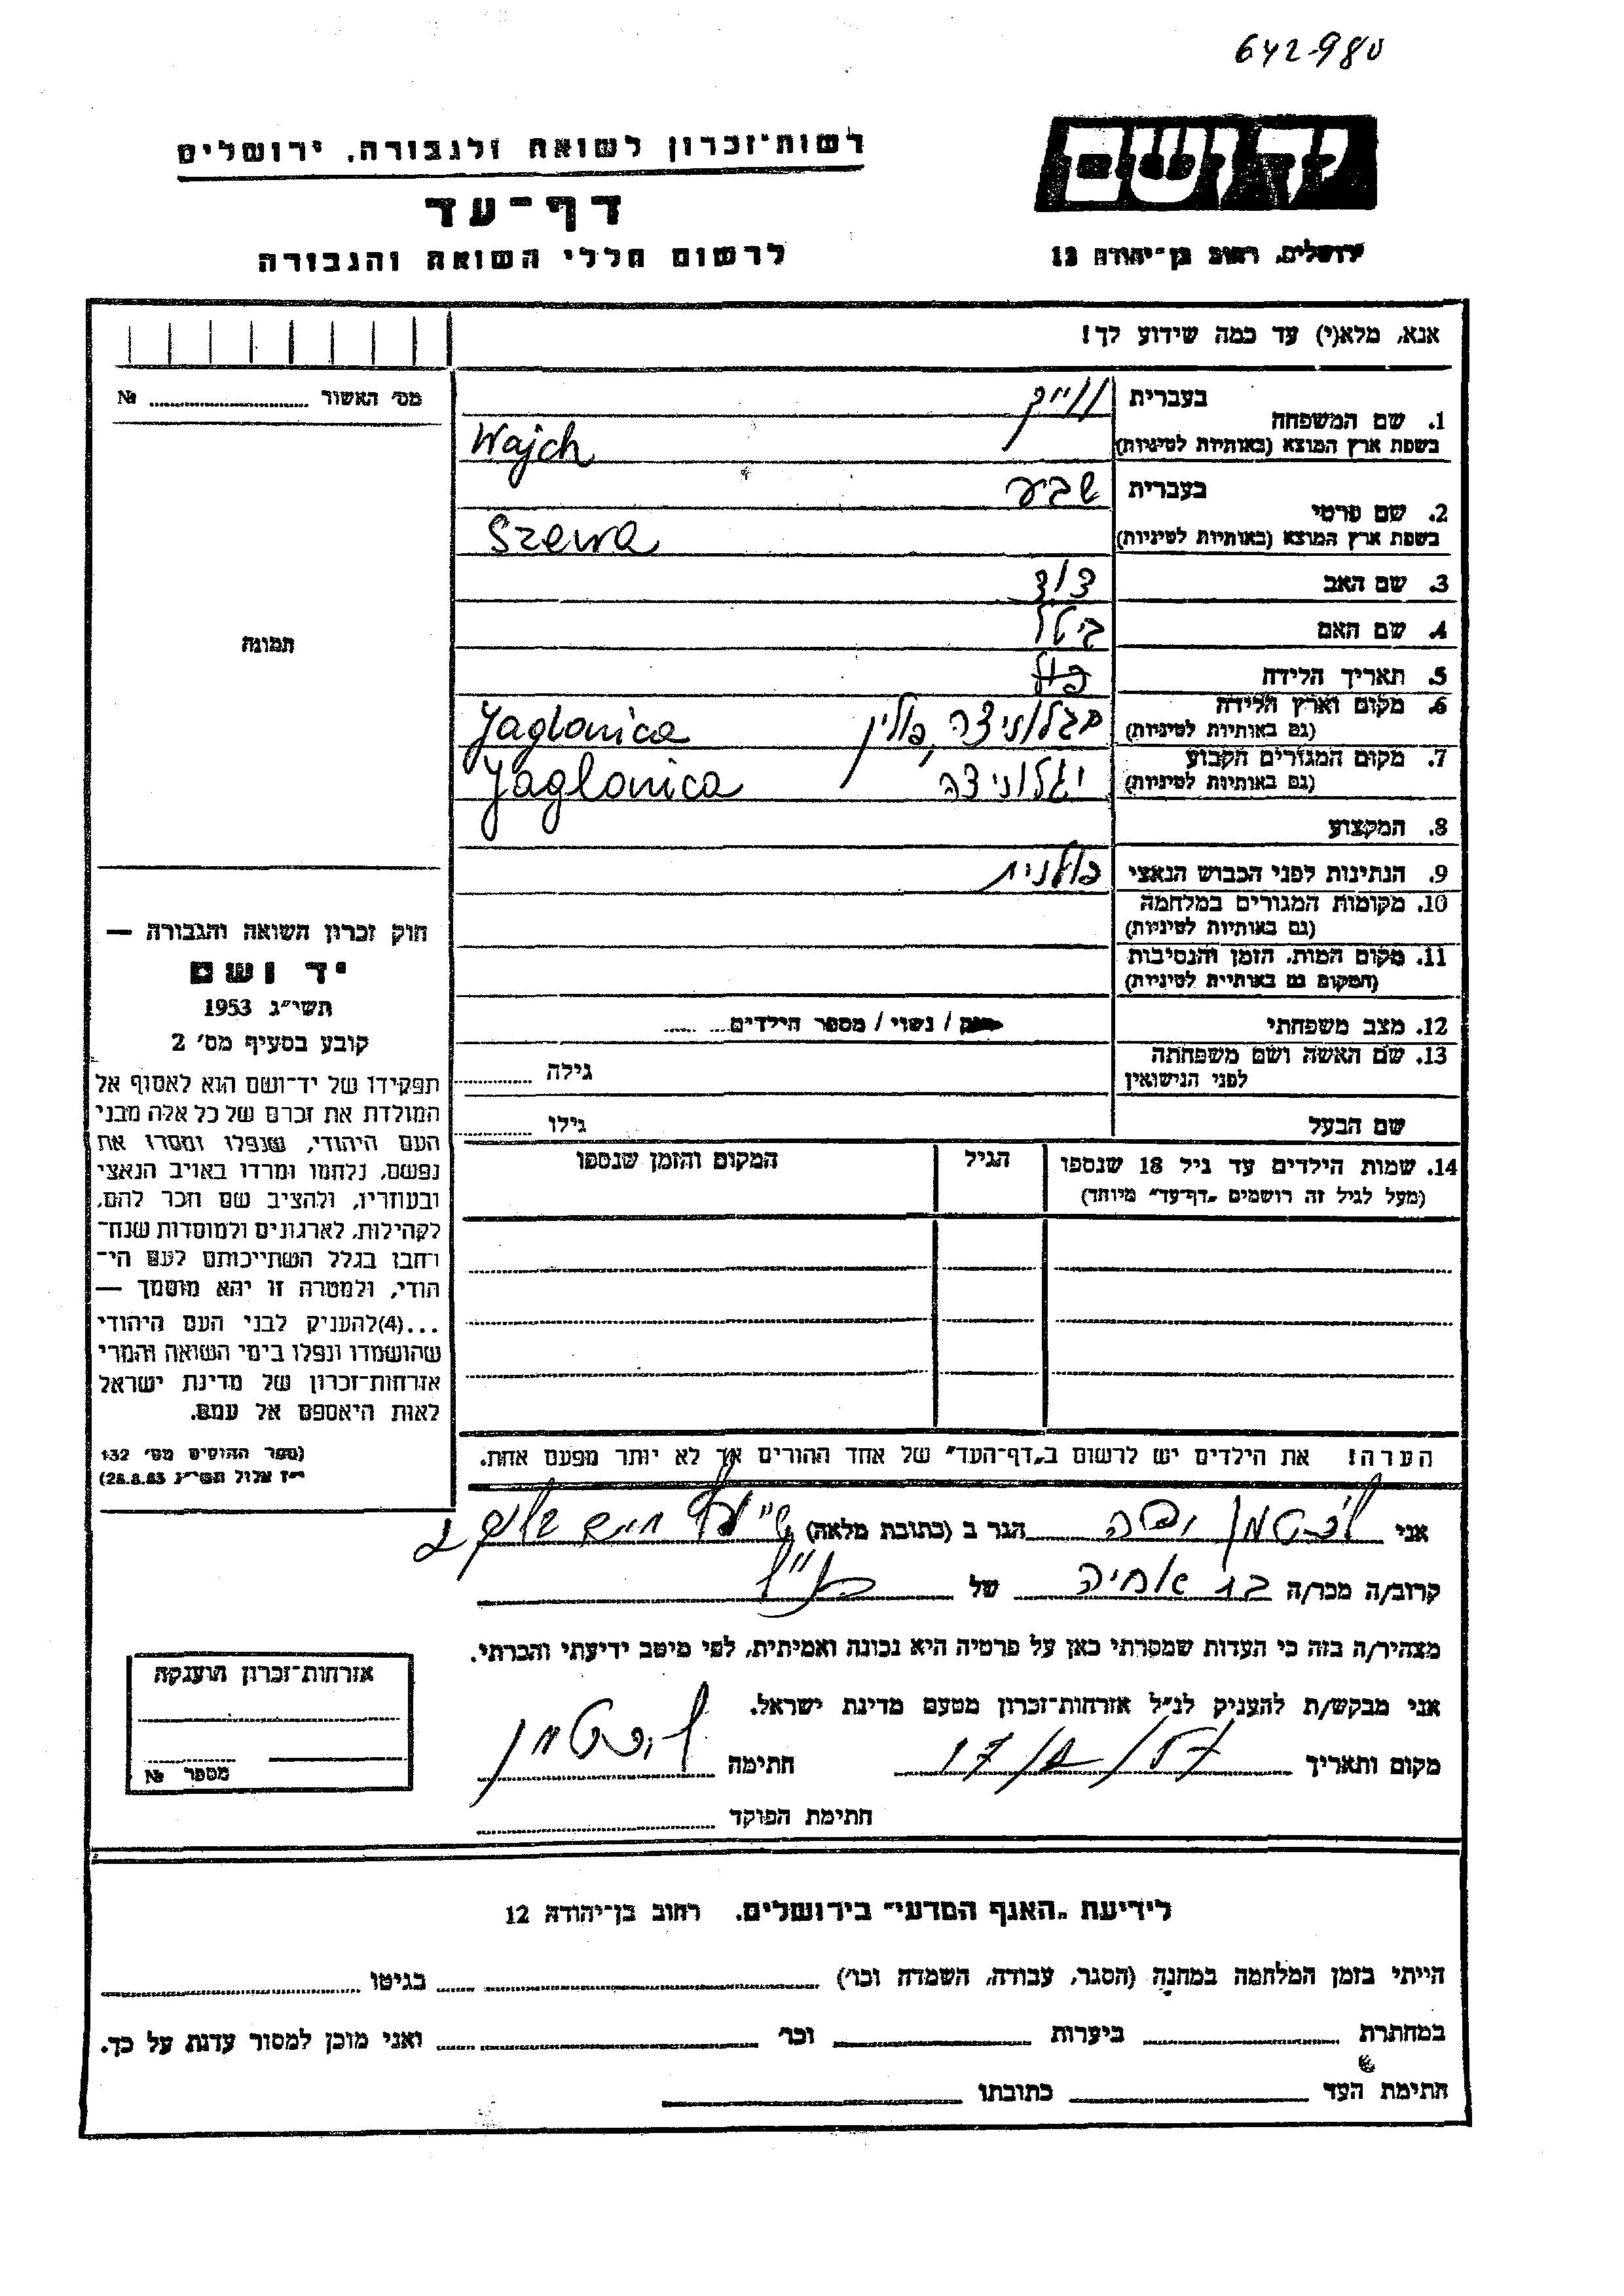 642-980
יד ושם
רשות־זכרון לשואה ולגבורה, ירושלים
דף־עד
ירושלים, רחוב בן־יהודה 12
לרשום חללי השואה והגבורה
אנא, מלא(י) עד כמה שידוע לך!
מס' האשור № 
1. שם המשפחה
בעברית ווייך
בשפת ארץ המוצא (באותיות לטיניות) Wajch
2. שם פרטי
בעברית שבע
בשפת ארץ המוצא (באותיות לטיניות) Szewa
3. שם האב דוד
4. שם האם
5. תאריך הלידה
6. מקום וארץ הלידה יגלוניצה, פולין Jaglonica
(גם באותיות לטיניות)
7. מקום המגורים הקבוע יגלוניצה Jaglonica
(גם באותיות לטיניות)
8. המקצוע
9. הנתינות לפני הכבוש הנאצי פולנית
10. מקומות המגורים במלחמה
(גם באותיות לטיניות)
11. מקום המות, הזמן והנסיבות
(המקום גם באותיות לטיניות)
12. מצב משפחתי / נשוי / מספר הילדים
13. שם האשה ושם משפחתה גילה
לפני הנישואין
שם הבעל גילו
תמונה
חוק זכרון השואה והגבורה —
יד ושם
תשי״ג 1953
קובע בסעיף מס' 2
תפקידו של יד־ושם הוא לאסוף אל
המולדת את זכרם של כל אלה מבני
העם היהודי, שנפלו ומסרו את
נפשם, נלחמו ומרדו באויב הנאצי
ובעוזריו, ולהציב שם וזכר להם,
לקהילות, לארגונים ולמוסדות שנח־
רחבו בגלל השתייכותם לעם הי־
הודי, ולמטרה זו יהא מוסמך —
...(4)להעניק לבני העם היהודי
שהושמדו ונפלו בימי השואה והמרי
אזרחות־זכרון של מדינת ישראל
לאות היאספם אל עמם.
(ספר החוקים מס' 132
י״ז אלול תשי״ג 28.8.53)
14. שמות הילדים עד גיל 18 שנספו הגיל המקום והזמן שנספו
(מעל לגיל זה רושמים „דף־עד״ מיוחד)
הערה! את הילדים יש לרשום ב„דף־העד״ של אחד ההורים אך לא יותר מפעם אחת.
אני הגר ב (כתובת מלאה)
קרוב/ה מכר/ה של
מצהיר/ה בזה כי העדות שמסרתי כאן על פרטיה היא נכונה ואמיתית, לפי מיטב ידיעתי והכרתי.
אני מבקש/ת להעניק לנ״ל אזרחות־זכרון מטעם מדינת ישראל.
מקום ותאריך חתימה
חתימת הפוקד
אזרחות־זכרון הוענקה
מספר №
לידיעת „האגף המדעי״ בירושלים, רחוב בן־יהודה 12
הייתי בזמן המלחמה במחנה (הסגר, עבודה, השמדה וכו') בגיטו
במחתרת ביערות וכו' ואני מוכן למסור עדות על כך.
חתימת העד כתובתו